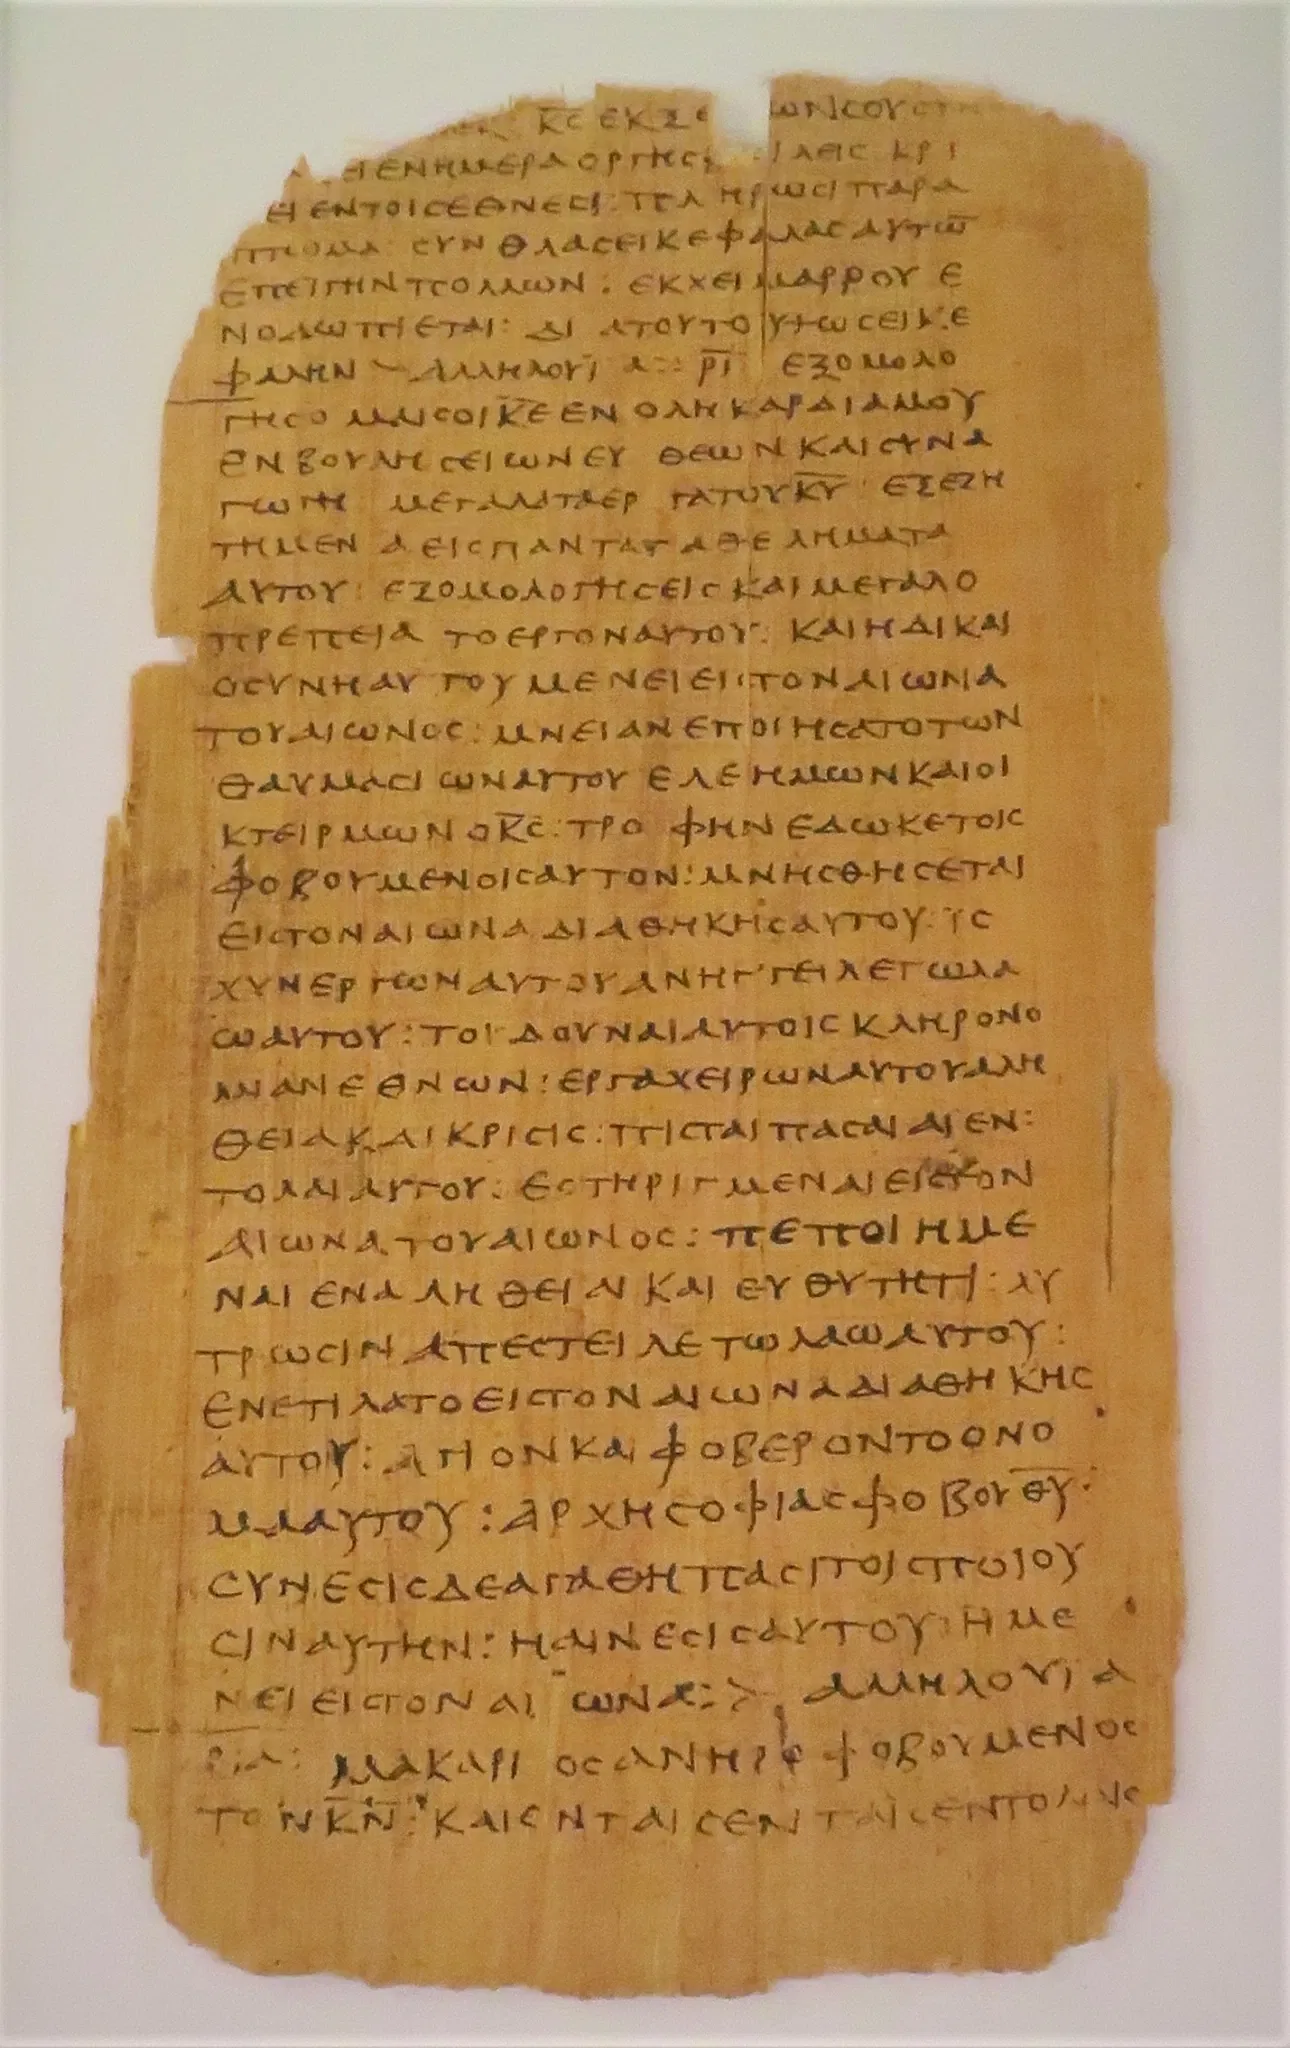 κ̅ς̅ εκ ξε ων σου συν
ει εν ημερα οργης ιλεις κρι
ει εν τοις εθνεσι : πληρωσι παρα
πτωμα : συνθλασει κεφαλας αυτω̅
επει γην πολλων : εκ χειμαρρου ε
ν οδω πιεται : δια τουτο υψωσει κε
φαλην αλληλουϊα :: ρ̅ι̅ εξομολο
γησομαι σοι κ̅ε̅ εν ολη καρδια μου
εν βουλη σειων ευθεων και συνα
γωγη μεγαλα τα εργα του κ̅υ̅ εξεζη
τημενα εις παντα τα θεληματα
αυτου : εξομολογησεις και μεγαλο
πρεπεια το εργον αυτου : και η δικαι
οσυνη αυτου μενει εις τον αιωνα
του αιωνος : μνειαν εποιησατο των
θαυμασιων αυτου ελεημων και οι
κτειρμων ο κ̅ς̅ : τροφην εδωκε τοις
φοβουμενοις αυτον : μνησθησεται
εις τον αιωνα διαθηκης αυτου : ϊσ
χυν εργων αυτου ανηγ'γειλε τω λα
ω αυτου : του δουναι αυτοις κληρονο
μιαν εθνων : εργα χειρων αυτου αλη
θεια και κρισις : πισται πασαι αι εν :
τολαι αυτου : εστηριγμεναι εις τον
αιωνα του αιωνος : πεποιημε
ναι εν αληθεια και ευθυτητι : λυ
τρωσιν απεστειλε τω λαω αυτου :
ενετιλατο εις τον αιωνα διαθηκης
αυτου : αγιον και φοβερον το ονο
μα αυτου : αρχη σοφιας φοβου θ̅υ̅ :
συνεσις δε αγαθη πασι τοις ποιου
σιν αυτην : η αινεσις αυτου η με
νει εις τον αιωνα : > αλληλουϊα
ρια : μακαριος ανηρ ο φοβουμενος
τον κ̅ν̅ : και εν ταις εν ταις εντολαις